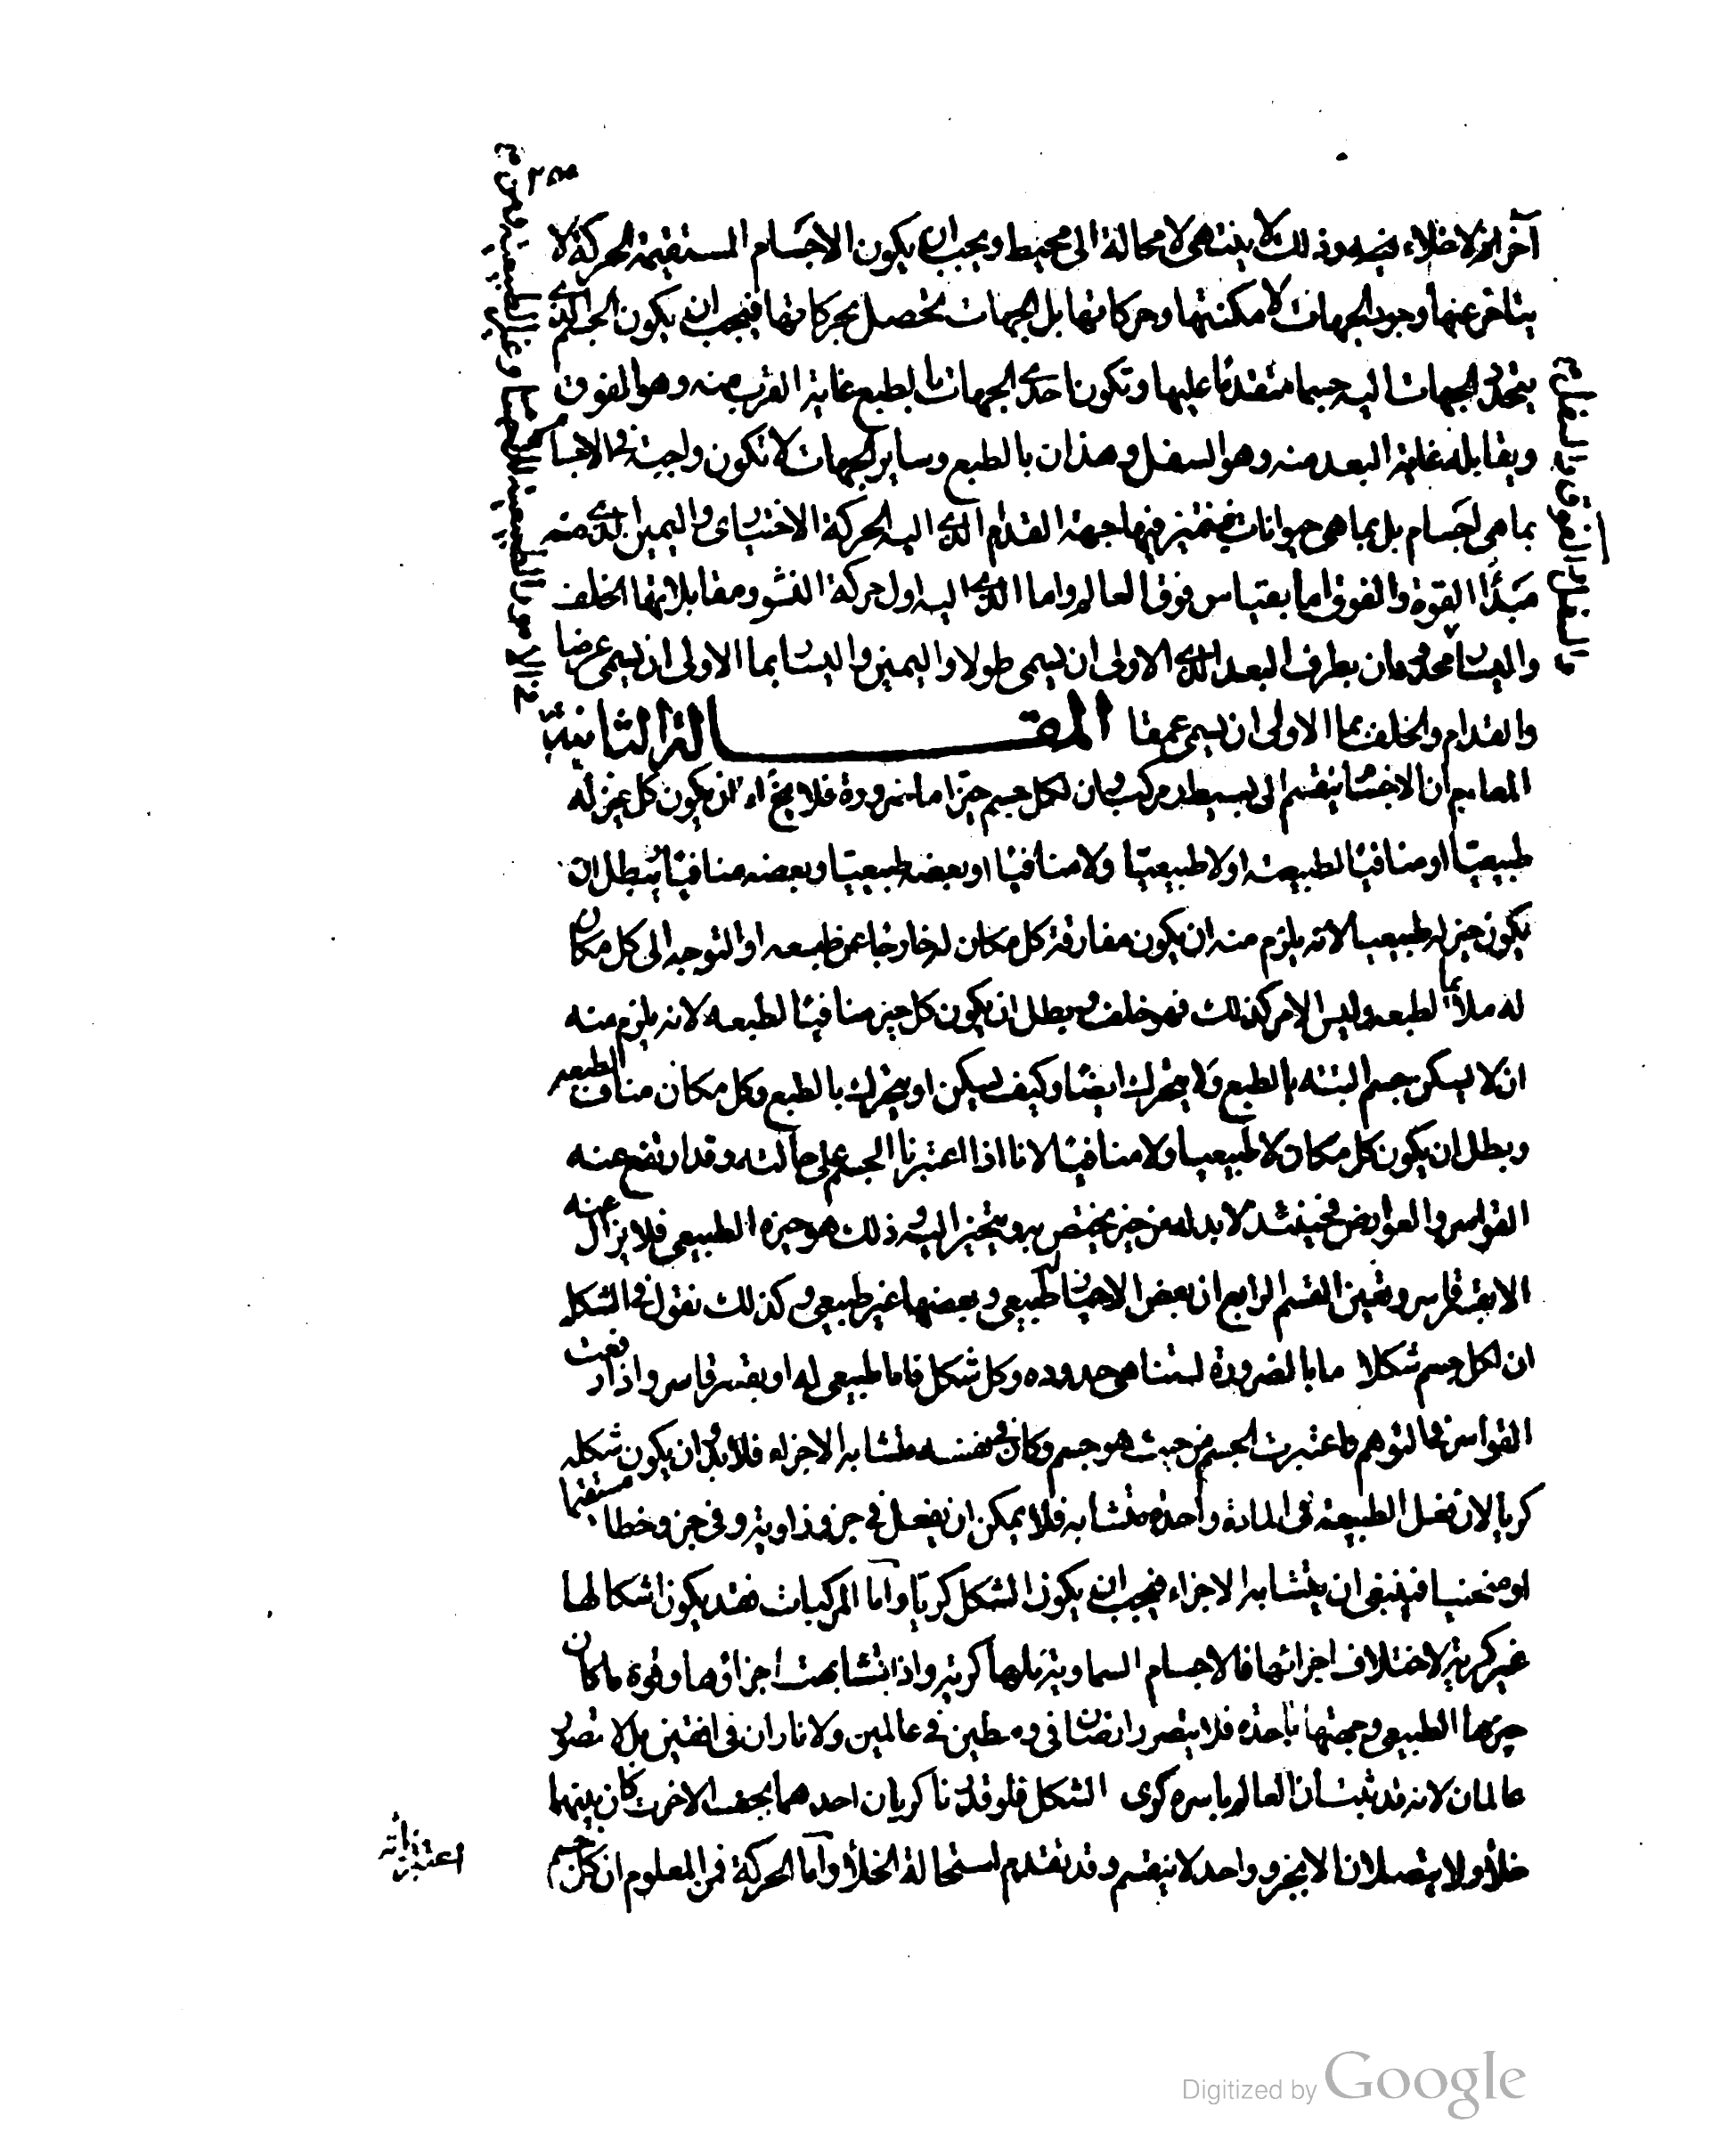 ٢٥٥
آخر اذ لا خلاء فيه وذلك لا ينتهى لا محالة الى محيط ويجب ان يكون الاجسام المستقيمة الحركة لا
يتاخر عنها وجود الجهات لامكنتها وحركاتها بل الجهات تحصل بحركاتها فيجب ان يكون الجسم الذى
يتحدد الجهات اليه جسما متقدما عليها وتكون احدى الجهات بالطبع غاية القرب منه وهو الفوق
ويقابله غاية البعد منه وهو السفل وهذان بالطبع وساير الجهات لا تكون واجبة فى الاجسام
بما هى اجسام بل بما هى حيوانات فيتميز فيها جهة القدام الذى اليه الحركة الاختيارى واليمين الذى منه
مبدأ القوة والفوق اما بقياس فوق العالم واما الذى اليه اول حركة النشو ومقابلاتها الخلف
واليسار محدودان بطرف البعد الذى الاولى ان يسمى طولا واليمين واليسار بما الاولى ان يسمى عرضا
والقدام والخلف بما الاولى ان يسمى عمقا المقالة الثانية
المعلوم ان الاجسام ينقسم الى بسيط ومركب وان لكل جسم حيزا ما ضرورة فلا يخ اما ان يكون كل حيز له
طبيعيا او منافيا لطبيعته او لا طبيعيا ولا منافيا او بعضه طبيعيا وبعضه منافيا يبطل ان
يكون حيز له طبيعيا لانه يلزم منه ان يكون مفارقة كل مكان له خارجا عن طبعه او التوجه الى كل مكان
له ملائما لطبعه وليس الامر كذلك فهو خلف ويبطل ان يكون كل حيز منافيا لطبعه لانه يلزم منه
ان لا يسكن جسم البتة بالطبع ولا يتحرك ايضا وكيف يسكن او يتحرك بالطبع وكل مكان مناف لطبعه
ويبطل ان يكون كل مكان لا طبيعيا ولا منافيا لانا اذا اعتبرنا الجسم على حالته وقد ارتفع عنه
القواسر والعوارض فحينئذ لا بد له من حيز يختص به ويتحيز اليه وذلك هو حيزه الطبيعى فلا يزال عنه
الا بقسر قاسر وتعين القسم الرابع ان بعض الاحياز له طبيعى وبعضها غير طبيعى وكذلك نقول فى الشكل
ان لكل جسم شكلا ما بالضرورة لتناهى حدوده وكل شكل فاما طبيعى له او بقسر قاسر واذا رفعت
القواسر فى التوهم واعتبرت الجسم من حيث هو جسم وكان فى نفسه متشابه الاجزاء فلا بد ان يكون شكله
كريا لان فعل الطبيعة فى المادة واحدة متشابه فلا يمكن ان يفعل فى جزء زاوية وفى جزء خطا مستقيما
او منحنيا فينبغى ان يتشابه الاجزاء فيجب ان يكون الشكل كريا واما المركبات فقد يكون اشكالها
غير كرية لاختلاف اجزائها فالاجسام السماوية كلها كرية واذا تشابهت اجزاؤها وقوة ما كان
حيزها الطبيعى وجهتها واحدة فلا يتصور ارضان فى وسطين فى عالمين ولا ناران فى افقين بل لا يتصور
عالمان لانه قد ثبت ان العالم باسره كرى الشكل فلو قدرنا كريان احدهما بجنب الاخر كان بينهما
خلأ ولا يتصلان الا بجزو واحد لا ينقسم وقد تقدم استحالة الخلأ واما الحركة فمن المعلوم ان كل جسم